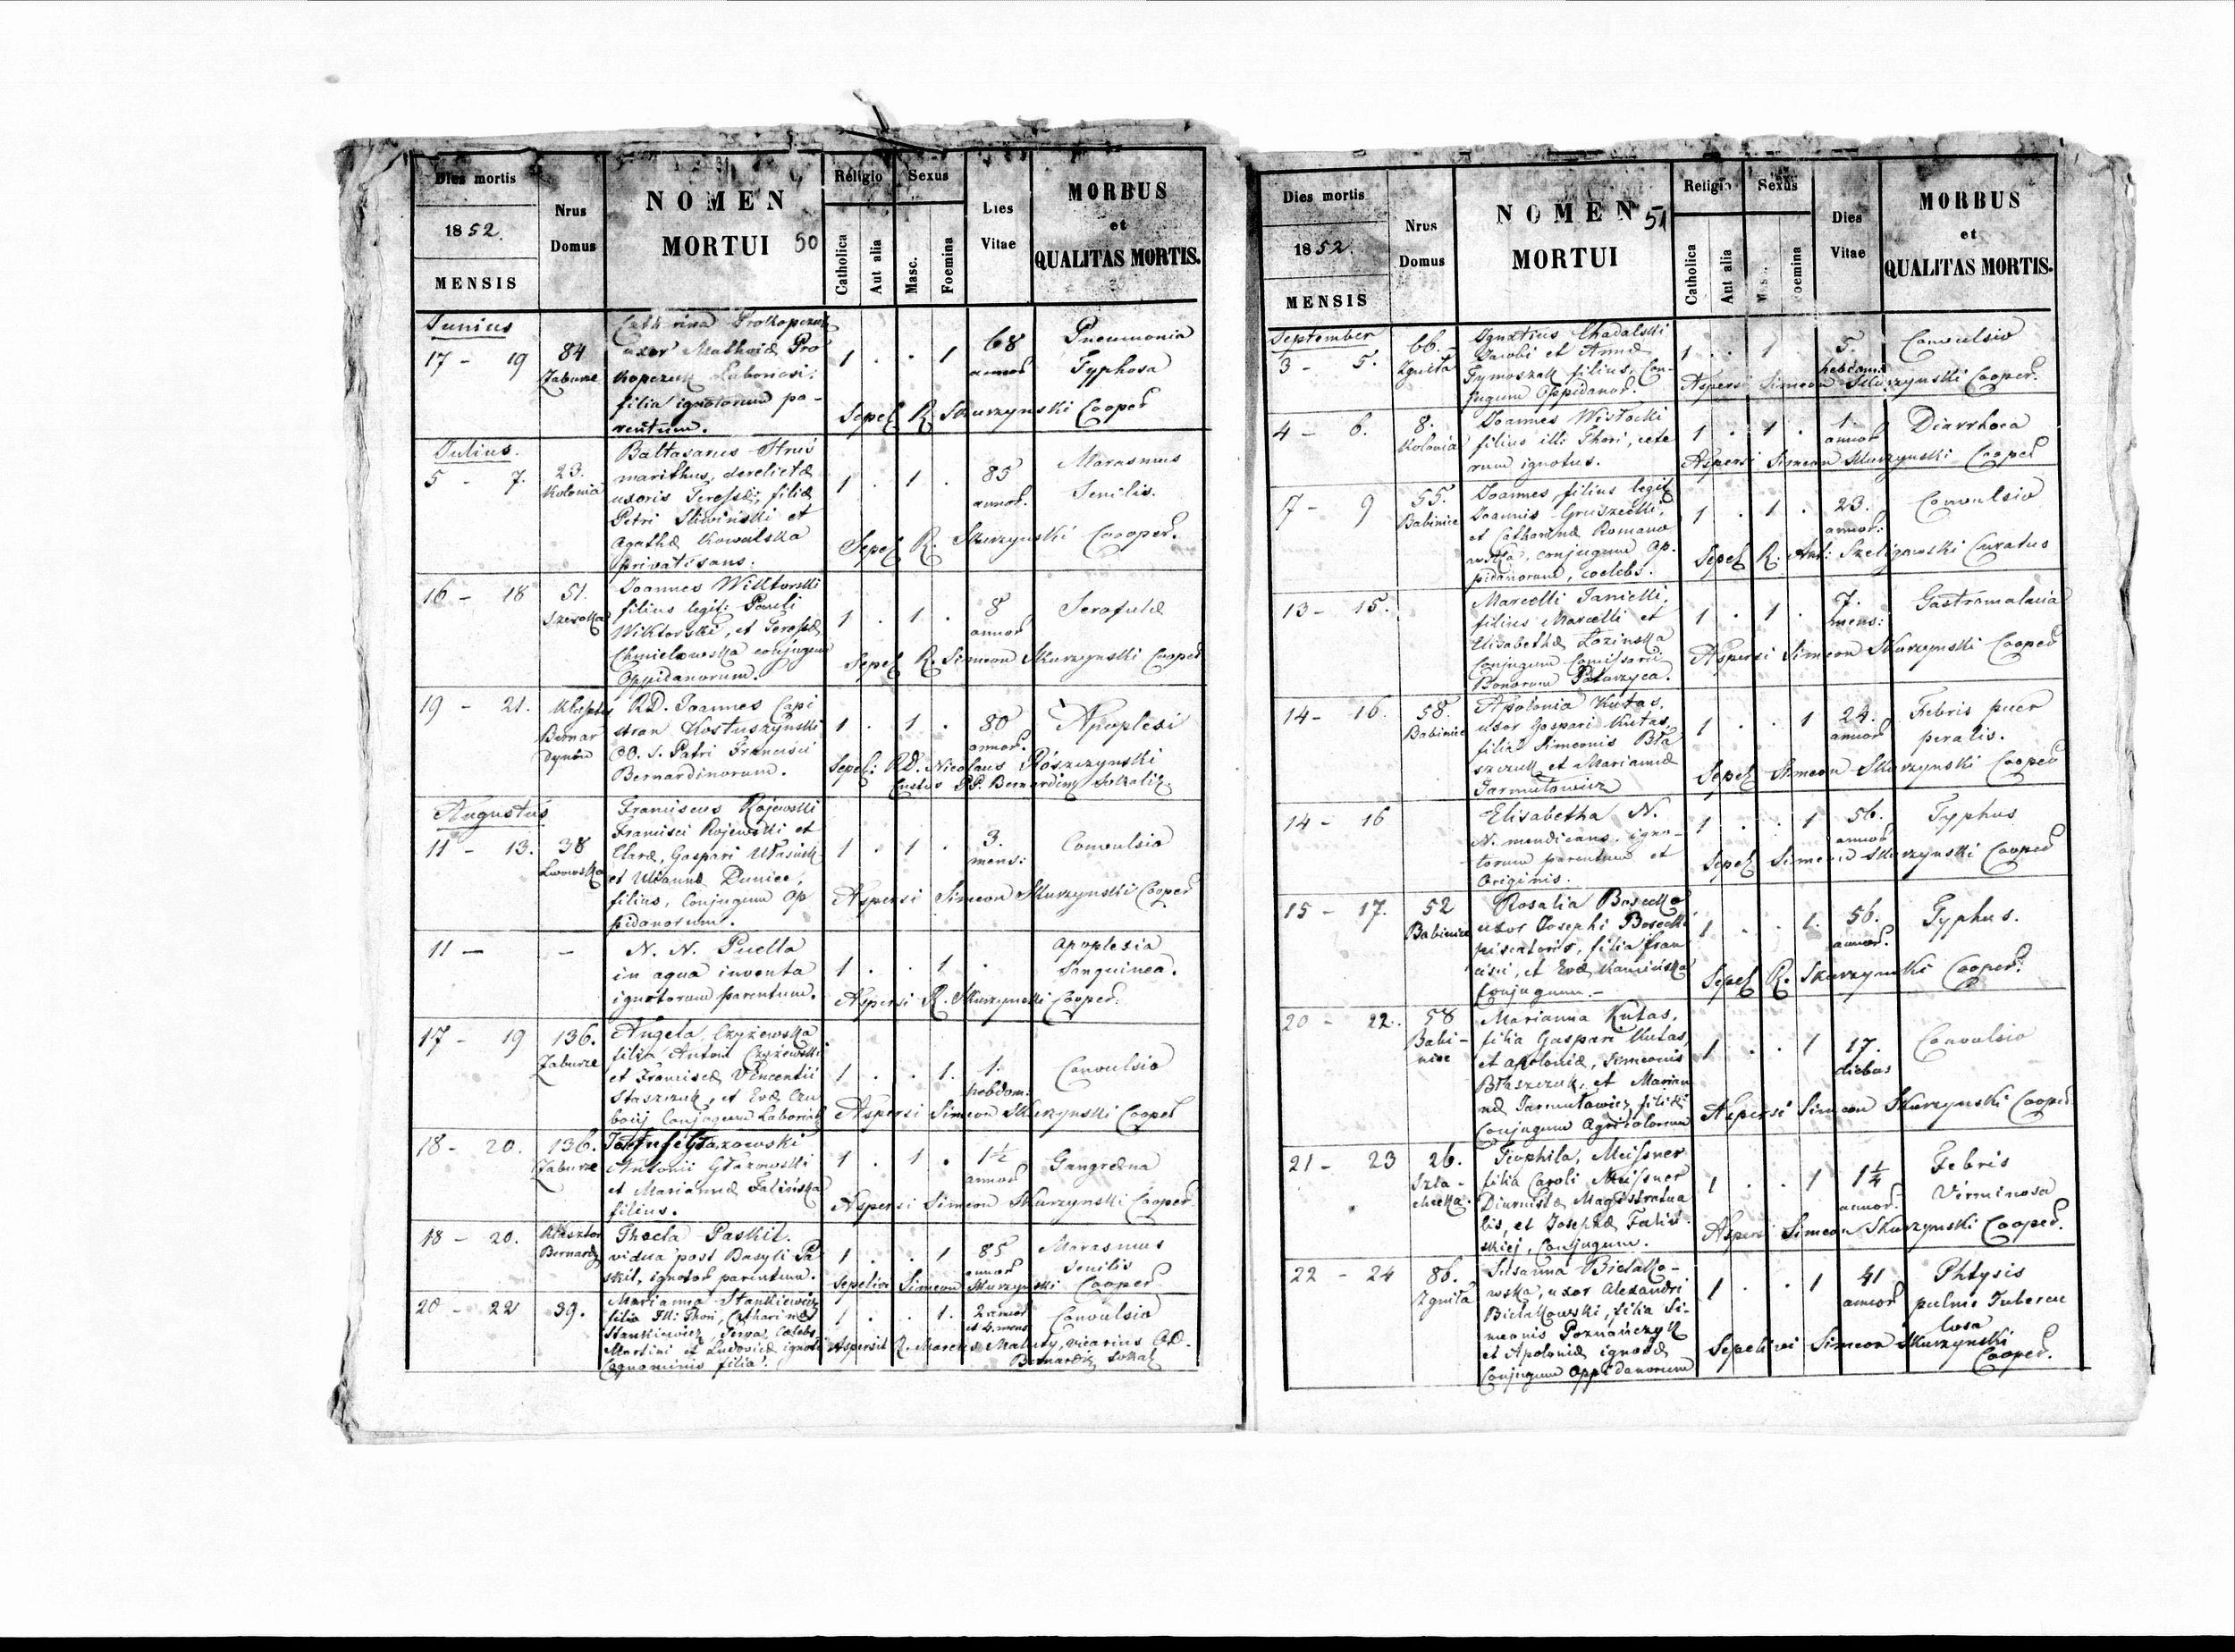 Dies mortis
1852.
MENSIS
Nrus
Domus
NOMEN
MORTUI 50
Religio
Catholica
Aut alia
Sexus
Masc.
Foemina
Dies
Vitae
MORBUS
et
QUALITAS MORTIS.
Junius
17 - 19
84
Zaburze
Catharina Prokopczuk
uxor Mathaei Pro
kopczuk Laboriosi,
filia ignotorum pa-
rentum.
1 . . 1
68
annor
Pneumonia
Typhosa
Sepel R. Skurzynski Cooper
Julius.
5 - 7.
23.
Kolonia
Baltasarus Strus
marithus, derelictae
uxoris Teressae, filiae
Petri Sliwiński et
Agathae Kowalska
privatisans.
1 . 1 .
85
annor.
Marasmus
Senilis.
Sepel R. Skurzynski Coooper.
16 - 18
51.
Szeroka
Joannes Wiktorski
filius legit: Pauli
Wiktorski, et Teressae
Chmielowska conjugum
Oppidanorum.
1 . 1 .
8
annor
Scrofulae
Sepel R. Simeon Skurzynski Cooper
19 - 21.
Klasztor
Bernar
dynów
RD. Joannes Capi
stran Kostuszyński
OO. S. Patri Francisci
Bernardinorum.
1 . 1 .
80
annor.
Apoplexi
Sepel: RD. Nicolaus Rószczynski
Custos PP. Bernardin Sokalie
Augustus
11 - 13.
38
Lwowska
Franciscus Rojewski
Francisci Rojewski et
Clarae, Gaspari Własiuk
et Uliannae Duniec,
filius, Conjugum Op
pidanorum.
1 . 1 .
3.
mens:
Convulsio
Aspersi Simeon Skurzynski Cooper
11 -
-
N. N. Puella
in aqua inventa
ignotorum parentum.
1 . . 1 .
Apoplexia
Sanguinea.
Aspersi R. Skurzynski Cooper.
17 - 19
136.
Zaburze
Angela Czyżewska
filia Antoni Czyżewski
et Franciscae Vincentii
Staszczuk, et Evae Czu
boij Conjugum Laborios
1 . . 1.
1.
hebdom:
Convulsio
Aspersi Simeon Skurzynski Cooper
18 - 20.
136.
Zaburze
Głazowski
Antonii Głazowski
et Mariannae Falińska
filius.
1 . 1 .
1½
annor
Gangraena
Aspersi Simeon Skurzynski Cooper.
18 - 20.
Klasztor
Bernardy
Thecla Paskit.
vidua post Basyli Pa
skit, ignotor parentum.
1 . . 1
85
annor
Marasmus
senilis
Sepelivi Simeon Skurzynski Cooper
20 - 22
39.
Marianna Stankiewicz
filia Illi: Thori, Catharinae
Stankiewicz, serva, Caelebs
Martini et Ludovicae ignoti
Cognominis filia.
1 . . 1.
2 annor
et 4. mens
Convulsio
Aspersit R. Marcus Maluty, vicarius OO.
Bernardin Sokal
Dies mortis
1852.
MENSIS
Nrus
Domus
NOMEN 51
MORTUI
Religio
Catholica
Aut alia
Sexus
Masc.
Foemina
Dies
Vitae
MORBUS
et
QUALITAS MORTIS.
September
3 - 5.
66.
Zgniła
Ignatius Chadalski
Jacobi et Annae
Tymoszak filius, Con-
jugum Oppidanor.
1 . 1 .
5.
hebdom:
Convulsio
Aspersi Simeon Skurzynski Cooper.
4 - 6.
8.
Kolonia
Joannes Wisłocki
filius illi Thori, cete
rum ignotus.
1 . 1 .
1.
annor
Diarrhoea
Aspersi Simeon Skurzynski Cooper
7 - 9
55.
Babiniec
Joannes filius legit
Joannis Gruszecki,
et Catharinae Romano
wska, conjugum Op-
pidanorum, coelebs.
1 . 1 .
23.
annor:
Convulsio
Sepel R. Ant: Szeligowski Curatus
13 - 15.
Marcelli Janicki,
filius Marcelli et
Elisabethae Łozinska
Conjugum Comissarii
Bonorum Poturzyca.
1 . 1 .
7.
mens:
Gastromalacia
Aspersi Simeon Skurzynski Cooper
14 - 16.
58.
Babiniec
Apolonia Kutas,
uxor Gaspari Kutas,
filia Simeonis Bła
szczuk et Mariannae
Jarmułowicz
1 . . 1
24.
annor
Febris puer
peralis.
Sepel Simeon Skurzynski Cooper
14 - 16
Elisabetha N.
N. mendicans, igno-
torum parentum et
Originis.
1 . . 1
56.
annor
Typhus
Sepel Simeon Skurzynski Cooper
15 - 17.
52
Babiniec
Rosalia Bosecka
uxor Josephi Bosecki
piscatoris, filia Fran
cisci, et Evae Kamińska
Conjugum.-
1 . . 1.
56.
annor.
Typhus.
Sepel R. Skurzynski Cooper.
20 - 22.
58
Babi-
niec
Marianna Kutas,
filia Gaspari Kutas,
et Apoloniae, Simeonis
Błaszczuk, et Marian
nae Jarmułowicz filiae
Conjugum Agricolarum
1 . . 1
17.
diebus
Convulsio
Aspersi Simeon Skurzynski Cooper
21 - 23
26.
Szla-
checka.
Teophila, Meissner
filia Caroli Meissner
Diurnistae Magistratua
lis, et Josephae Faliń-
skiej, Conjugum.
1 . . 1
1¼
annor.
Febris
Verminosa
Aspersi Simeon Skurzynski Cooper.
22 - 24
86.
Zgniła
Susanna Bielako-
wska, uxor Alexandri
Bielakowski, filia Si-
meonis Poznańczyk
et Apoloniae ignotae
Conjugum Oppidanorum
1 . . 1
41
annor
Phtysis
pulmo Tubercu
losa
Sepelivi Simeon Skurzynski
Cooper.